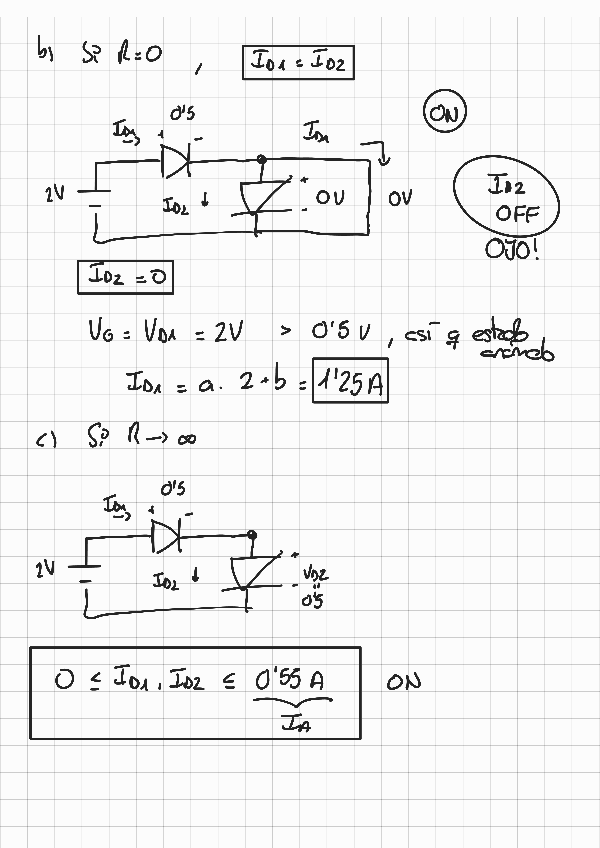 b) Si R=0 , I_D1 = I_D2
ON
0'5
I_D1 + - I_D1
2V I_D2 ↓ + - 0V 0V
I_D2
OFF
OJO!
I_D2 = 0
V_G = V_D1 = 2V > 0'5 V , así q estado
I_D1 = a · 2 + b = 1'25 A
c) Si R → ∞
0'5
I_D1 + -
2V I_D2 ↓ + - V_D2
0'5
0 ≤ I_D1, I_D2 ≤ 0'55 A ON
I_A